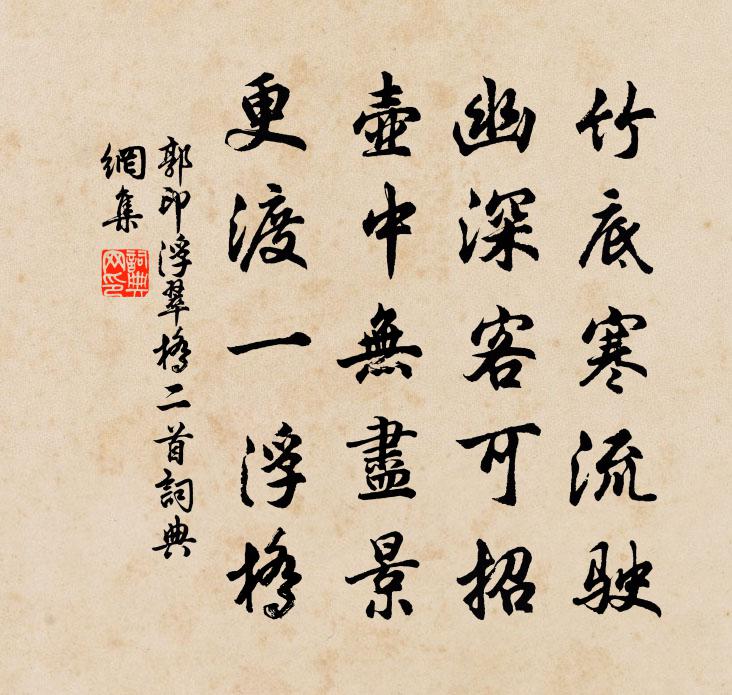 竹底寒流駛
幽深客可招
壺中無盡景
更渡一浮橋
郭印浮翠橋二首詞典
網集
詞典網印